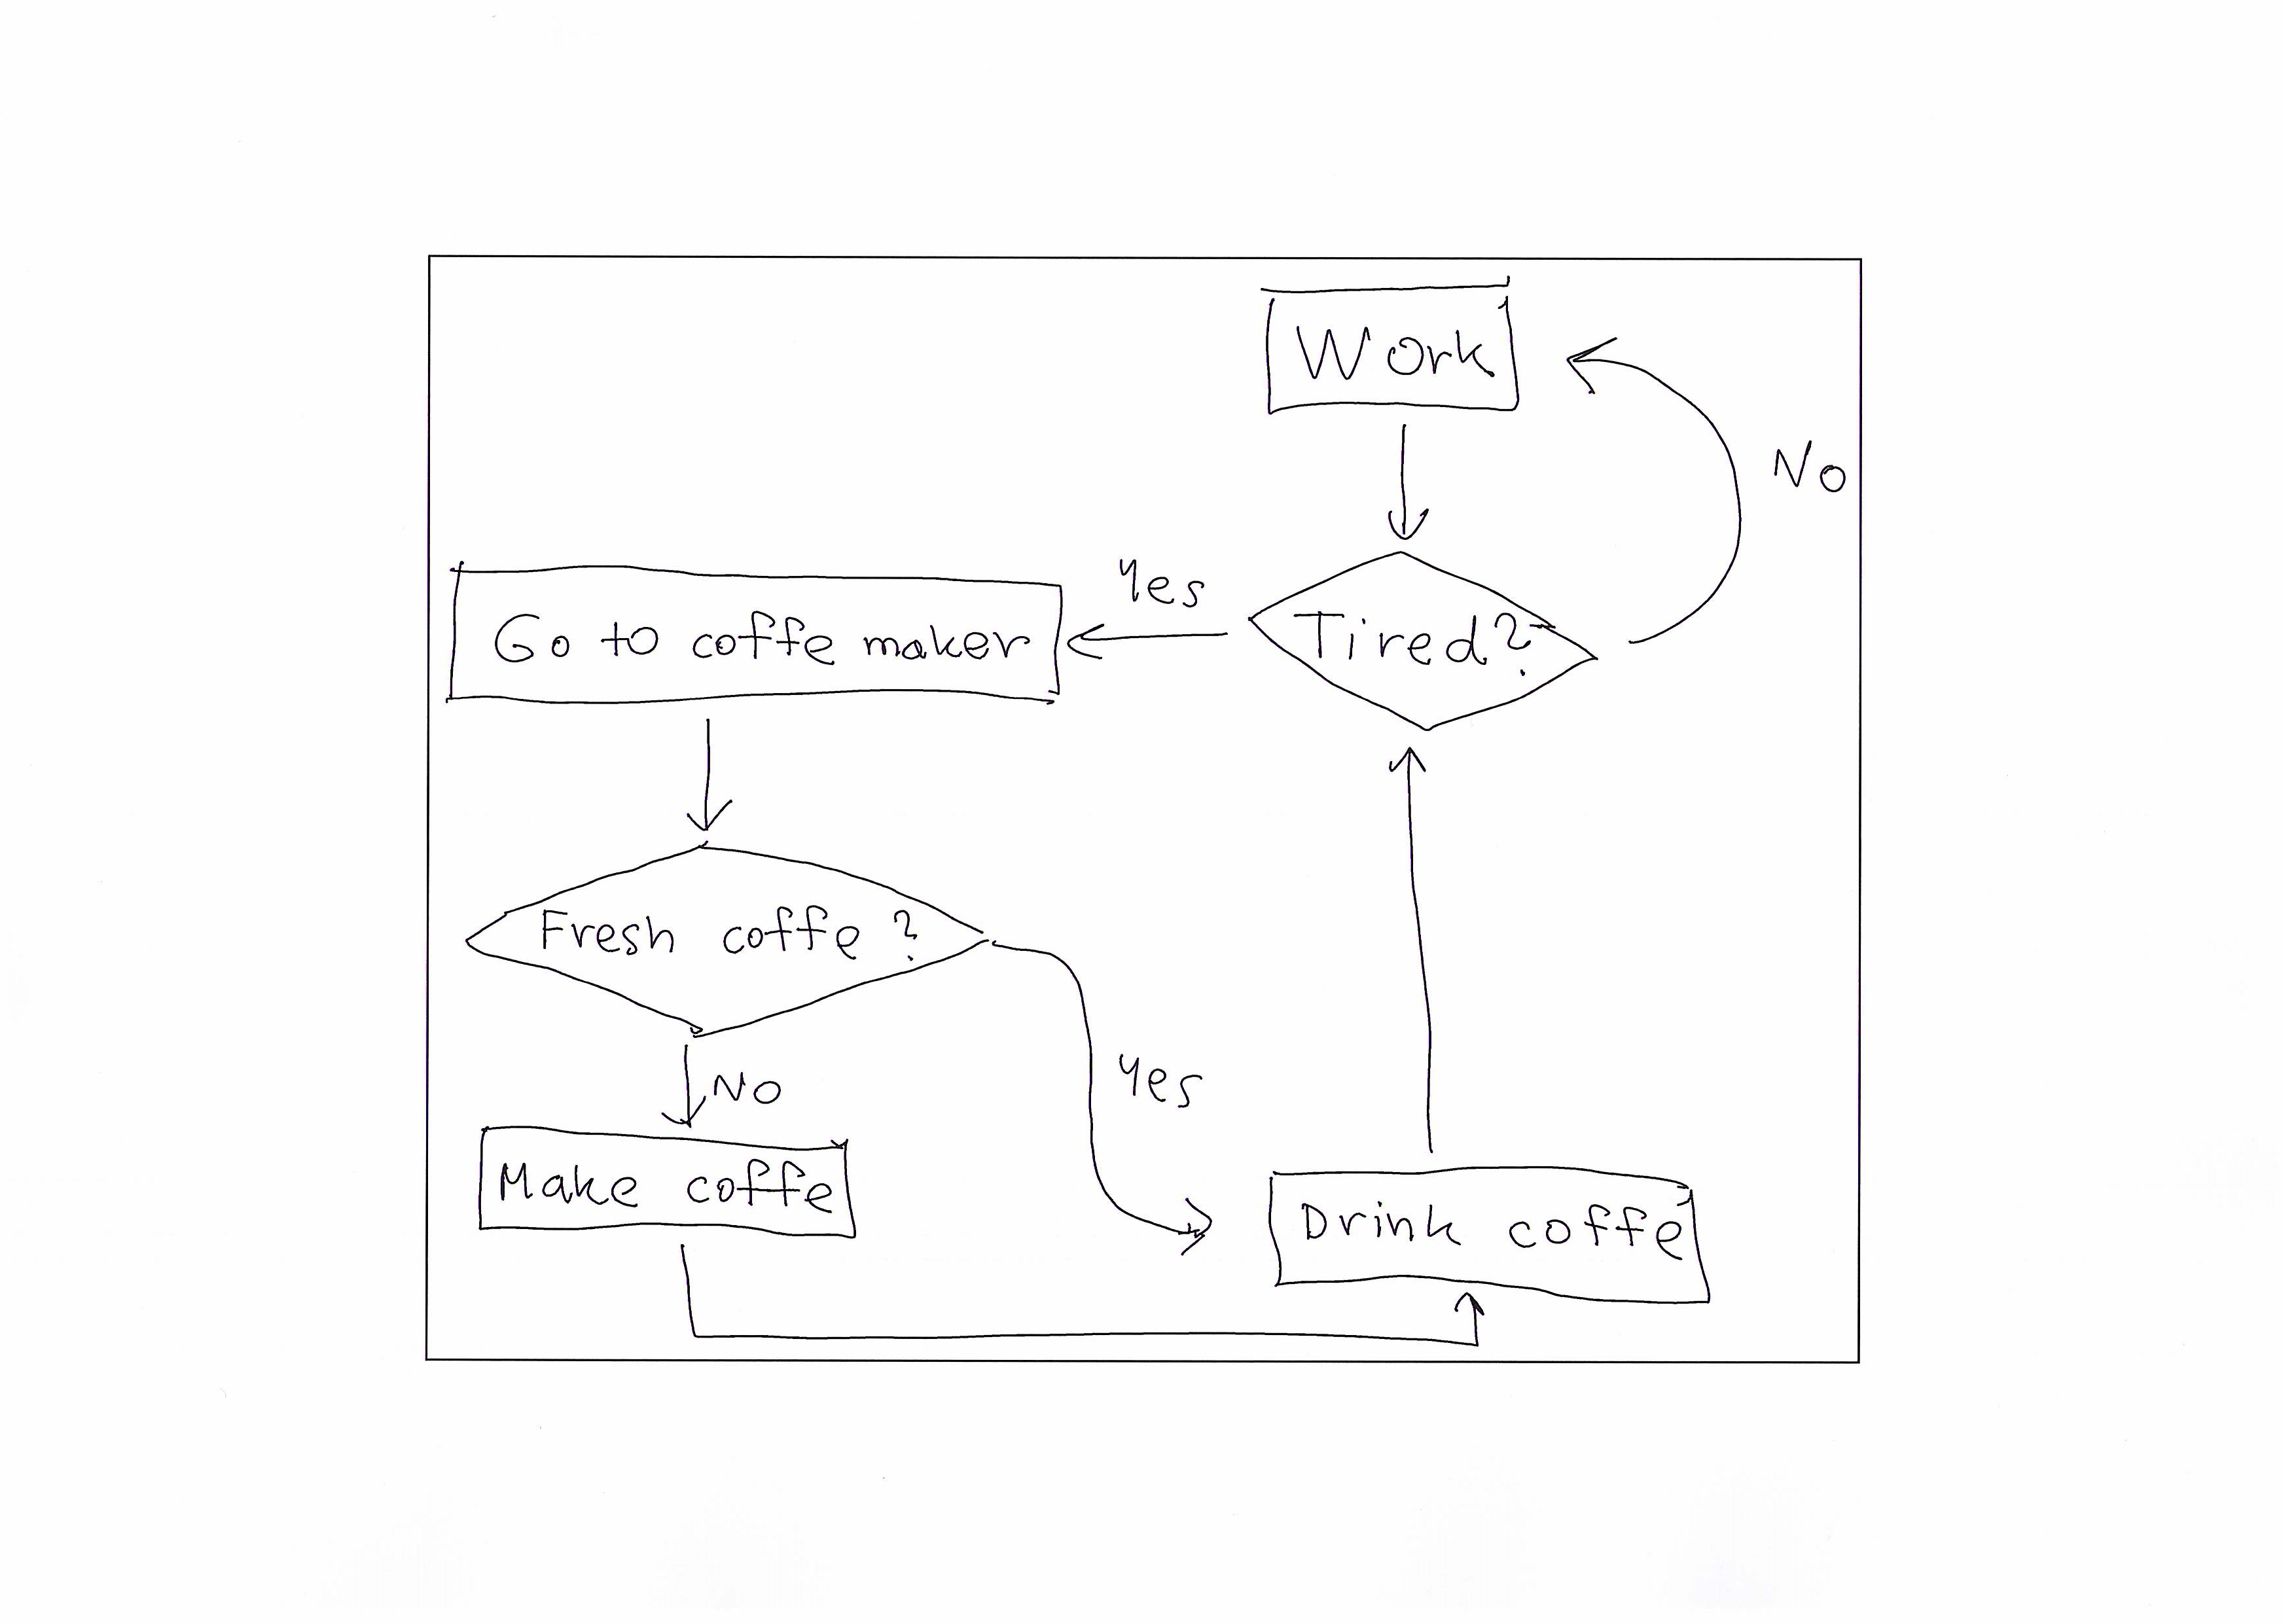 Work
No
Yes
Tired?
Go to coffe maker
Fresh coffe ?
Yes
No
Make coffe
Drink coffe